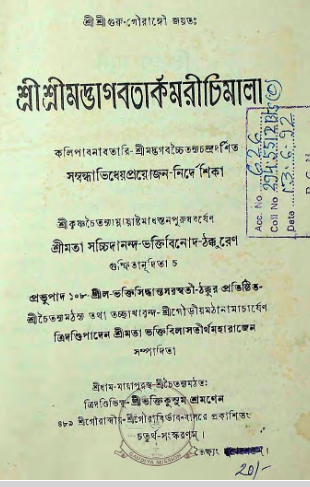 শ্রীশ্রীগুরু-গৌরাঙ্গৌ জয়তঃ
শ্রীশ্রীমদ্ভাগবতার্কমরীচিমালা
কলিপাবনাবতারি-শ্রীমদ্ভগবচ্চৈতন্যচন্দ্রদর্শিত
সম্বন্ধাভিধেয়প্রয়োজন-নির্দেশিকা
Acc. No
Coll No
Date
শ্রীকৃষ্ণচৈতন্যাম্নায়াষ্টমাধস্তনপুরুষবর্যেণ
শ্রীমতা সচ্চিদানন্দ-ভক্তিবিনোদ-ঠক্কুরেণ
গুম্ফিতানূদিতা চ
প্রভুপাদ ১০৮-শ্রীল-ভক্তিসিদ্ধান্তসরস্বতী-ঠক্কুর প্রতিষ্ঠিত-
শ্রীচৈতন্যমঠস্য তথা তচ্ছাখানন্দ-শ্রীগৌড়ীয়মঠানামাচার্যেণ
ত্রিদণ্ডিপাদেন শ্রীমতা ভক্তিবিলাসতীর্থমহারাজেন
সম্পাদিতা
শ্রীধাম-মায়াপুরস্থ-শ্রীচৈতন্যমঠতঃ
ত্রিদণ্ডিভিক্ষু-শ্রীভক্তিকুসুম শ্রমণেন
৪৮৯ শ্রীগৌরাব্দীয়-শ্রীগৌরাবির্ভাব-বাসরে প্রকাশিতং
চতুর্থ-সংস্করণম্।
GAUDIYA MISSION
ভৈক্ষ্যং
20/-